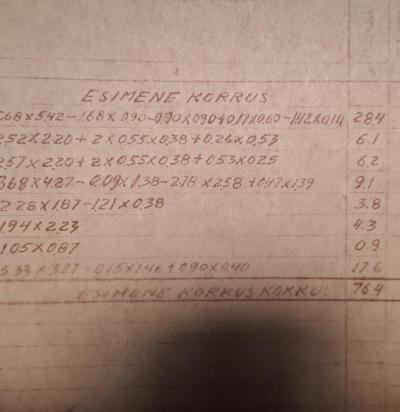 ESIMENE KORRUS
5.68×5.42-1.68×0.90-0.90×0.90+0.17×0.60-1.42×0.14 28.4
2.52×2.20+2×0.55×0.38+0.26×0.53 6.1
2.57×2.20+2×0.55×0.38+0.53×0.25 6.2
3.68×4.27-0.09×1.38-2.78×2.58+0.47×1.39 9.1
2.28×1.87-1.21×0.38 3.8
1.94×2.23 4.3
1.05×0.87 0.9
5.33×3.27-0.15×1.46+0.90×0.40 17.6
ESIMENE KORRUS KOKKU: 76.4